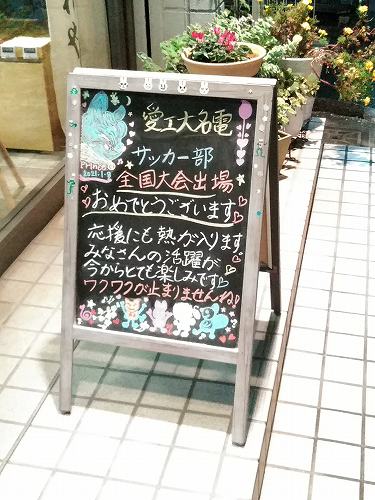 愛工大名電
サッカー部
全国大会出場
おめでとうございます
応援にも熱が入ります
みなさんの活躍が
今からとても楽しみです
ワクワクが止まりませんね!